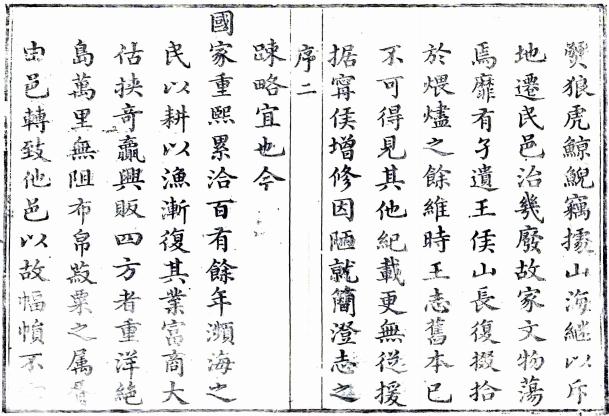 燹狼虎鯨鯢竊據山海繼以斥
地遷民邑治幾廢故家文物蕩
焉靡有孑遺王侯山長復掇拾
於煨燼之餘維時王志舊本已
不可得見其他紀載更無從援
据甯侯增修因陋就簡澄志之
序二
踈略宜也今
國家重熙累洽百有餘年瀕海之
民以耕以漁漸復其業富商大
估挾奇贏興販四方者重洋絕
島萬里無阻布帛菽粟之属
由邑轉致他邑以故幅幀不